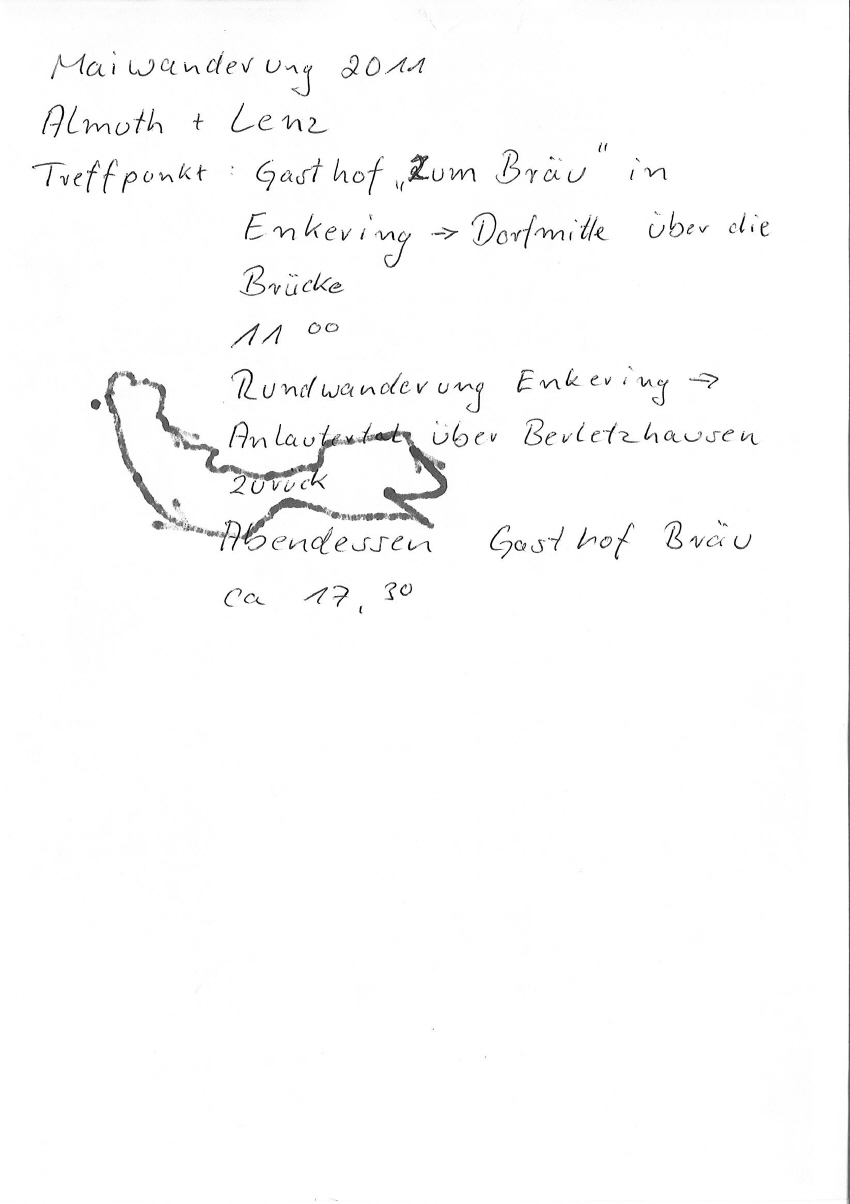 Maiwanderung 2011
Almuth + Lenz
Treffpunkt: Gasthof „Zum Bräu“ in
Enkering → Dorfmitte über die
Brücke
11 00
Rundwanderung Enkering →
Anlautertal über Berletzhausen
zurück
Abendessen Gasthof Bräu
ca 17,30